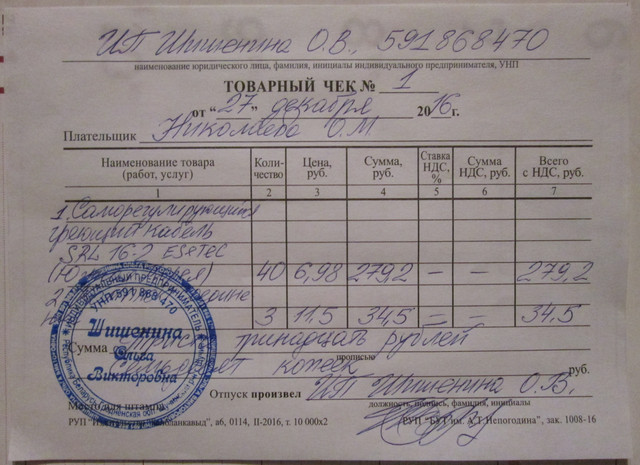 ИП Шишенина О.В., 591868470
наименование юридического лица, фамилия, инициалы индивидуального предпринимателя, УНП
ТОВАРНЫЙ ЧЕК № 1
от "27" декабря 2016 г.
Плательщик Николаева О.М
Наименование товара (работ, услуг) Коли-чество Цена, руб. Сумма, руб. Ставка НДС, % Сумма НДС, руб. Всего с НДС, руб.
1 2 3 4 5 6 7
1. Саморегулирующийся
греющий кабель
SRL 16-2 ESETEC
40 6,98 279,2 – – 279,2
3 11,5 34,5 – – 34.5
Сумма тринадцать рублей
прописью
копеек руб.
Отпуск произвел ИП Шишенина О.В.
должность, подпись, фамилия, инициалы
Место для штампа
РУП "БУТ им. А.Т.Непогодина", зак. 1008-16
аб, 0114, II-2016, т. 10 000х2
ИНДИВИДУАЛЬНЫЙ ПРЕДПРИНИМАТЕЛЬ
УНП 591 868 470
Шишенина
Ольга
Викторовна